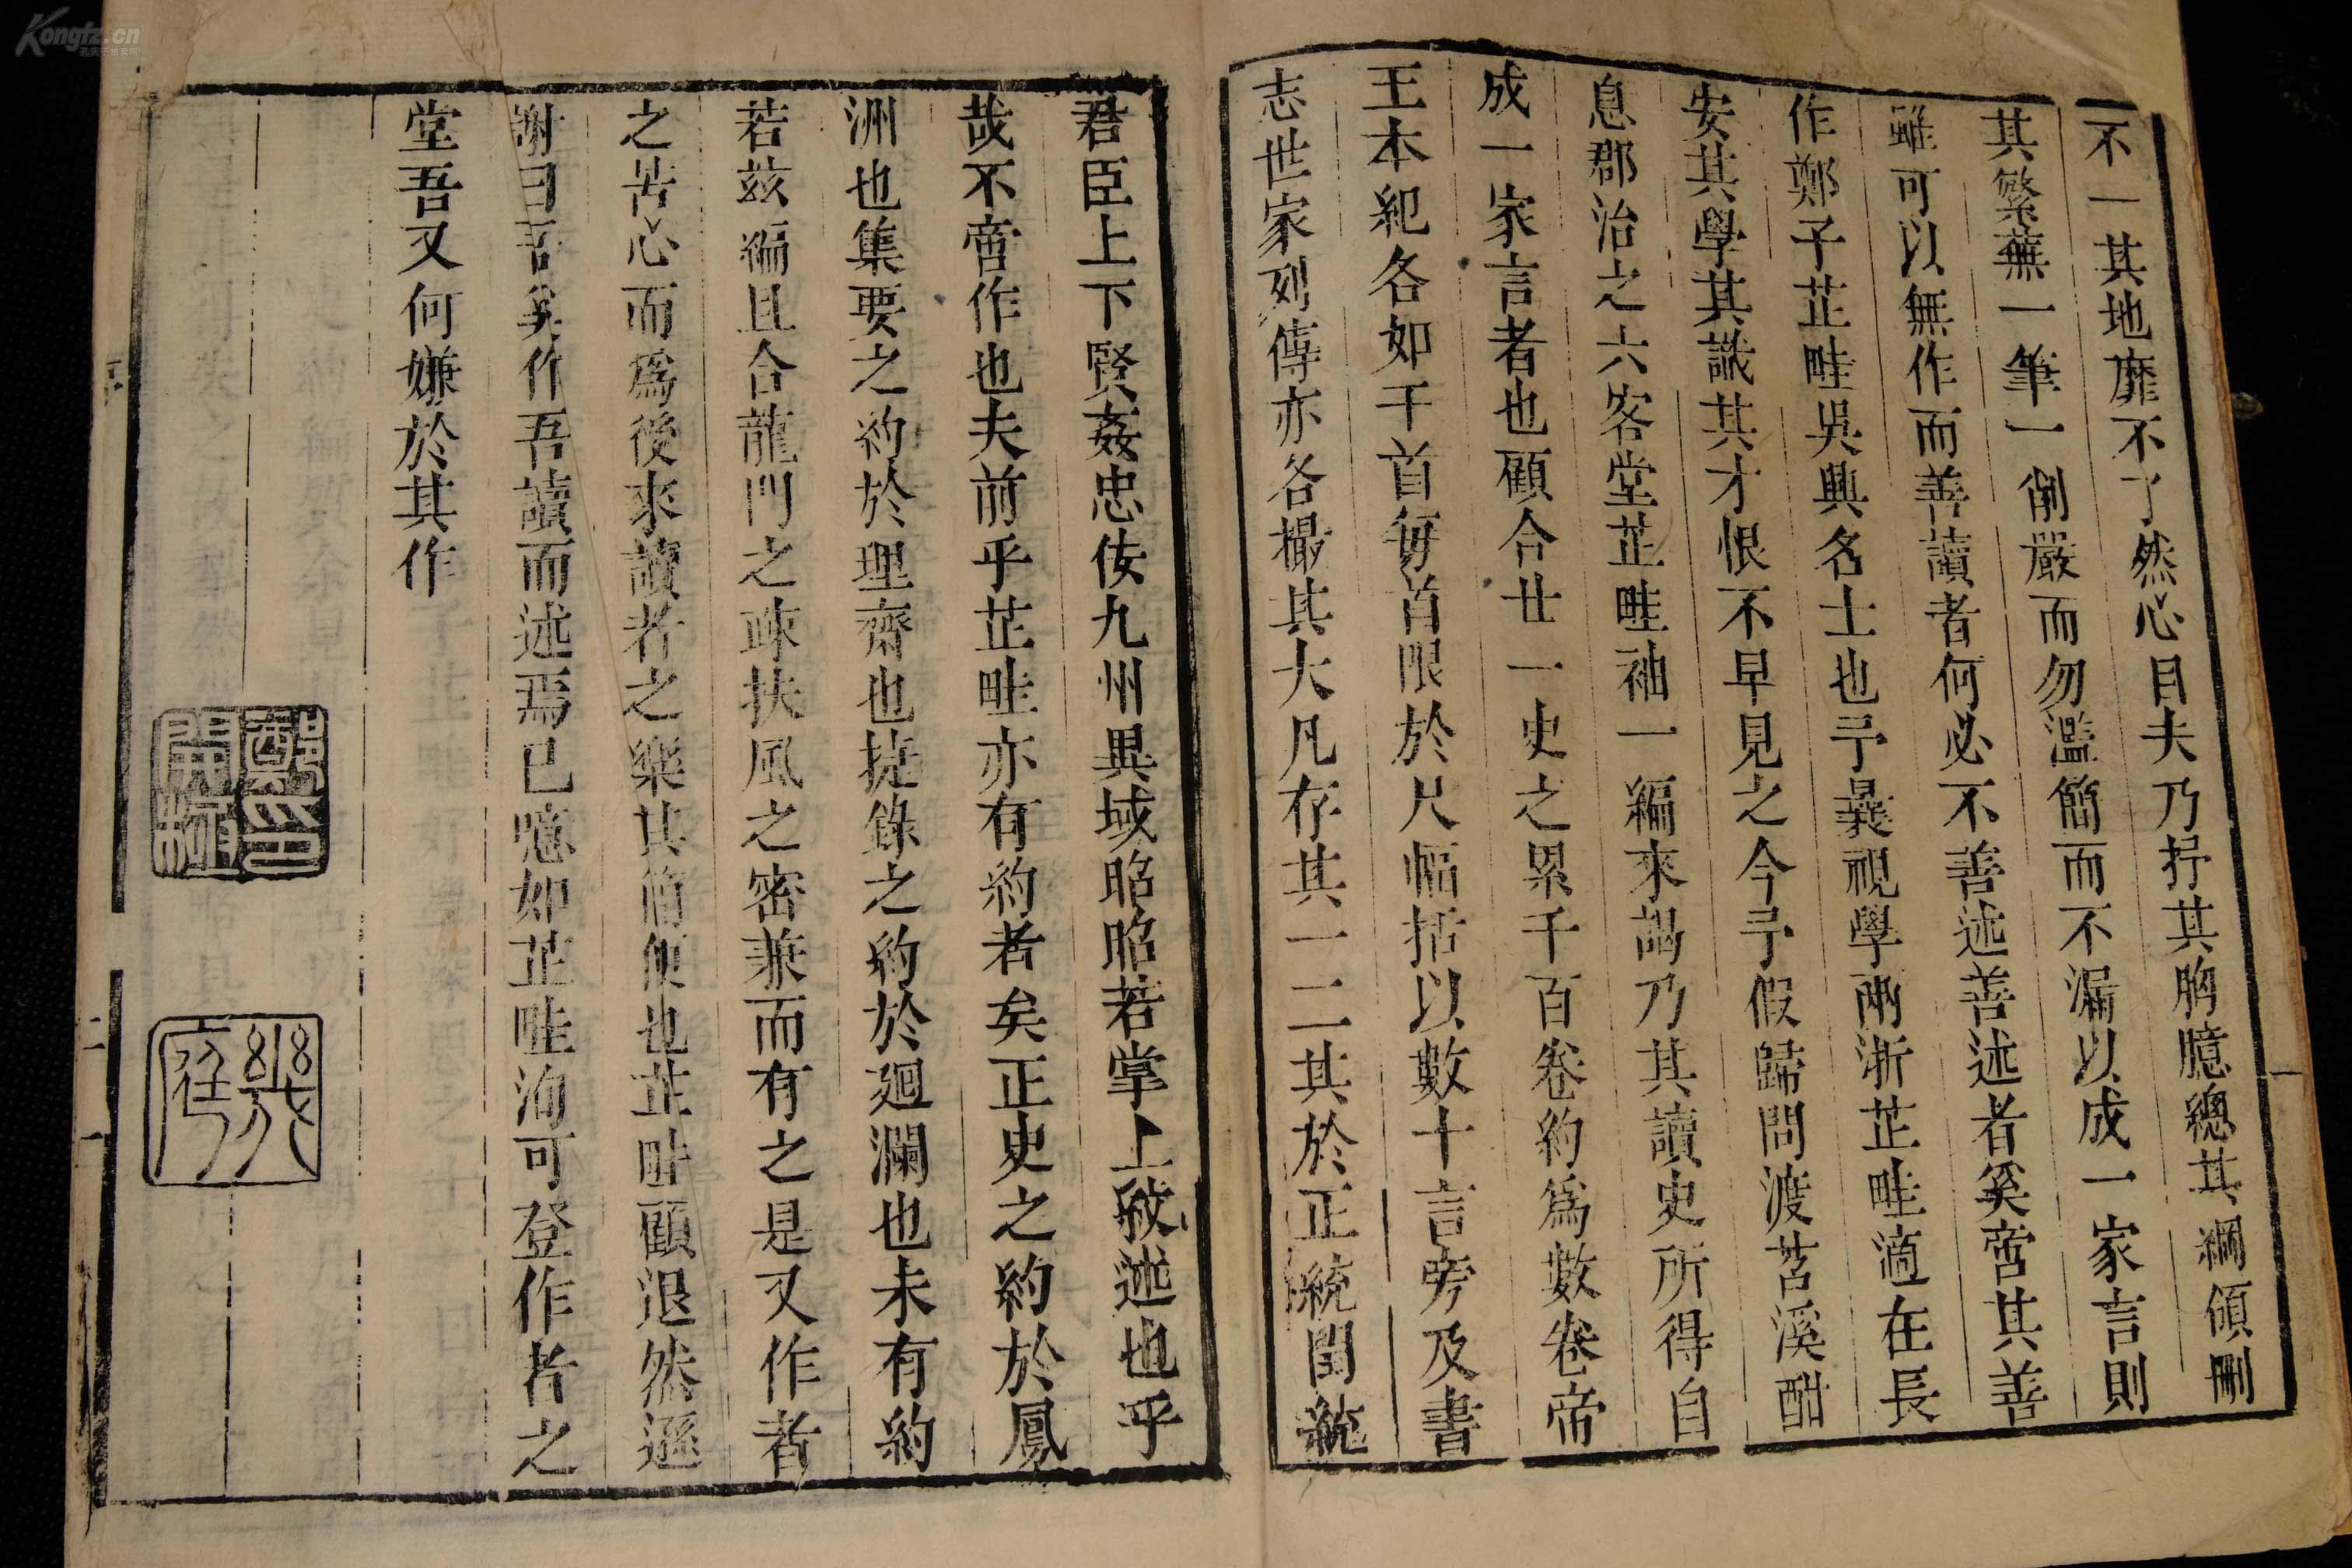 不一其地靡不了然心目夫乃抒其胸臆總其綱領刪
其繁蕪一筆一削嚴而勿濫簡而不漏以成一家言則
雖可以無作而善讀者何必不善述善述者奚啻其善
作鄭子芷畦吳興名士也予曩視學兩浙芷畦適在長
安其學其識其才恨不早見之今予假歸問渡苕溪酣
息郡治之六客堂芷畦袖一編來謁乃其讀史所得自
成一家言者也顧合廿一史之累千百卷約為數卷帝
王本紀各如干首每首限於尺幅括以數十言旁及書
志世家列傳亦各撮其大凡存其一二其於正統閏統
君臣上下賢姦忠佞九州異域昭昭若掌上敘述也乎
哉不啻作也夫前乎芷畦亦有約者矣正史之約於鳳
洲也集要之約於理齋也捷錄之約於迴瀾也未有約
若茲編且合龍門之疎扶風之密兼而有之是又作者
之苦心而為後來讀者之樂其簡便也芷畦顧退然遜
謝曰吾奚作吾讀而述焉已噫如芷畦洵可登作者之
堂吾又何嫌於其作
鄭開極印
幾庭
序
二
一
Kongfz.cn